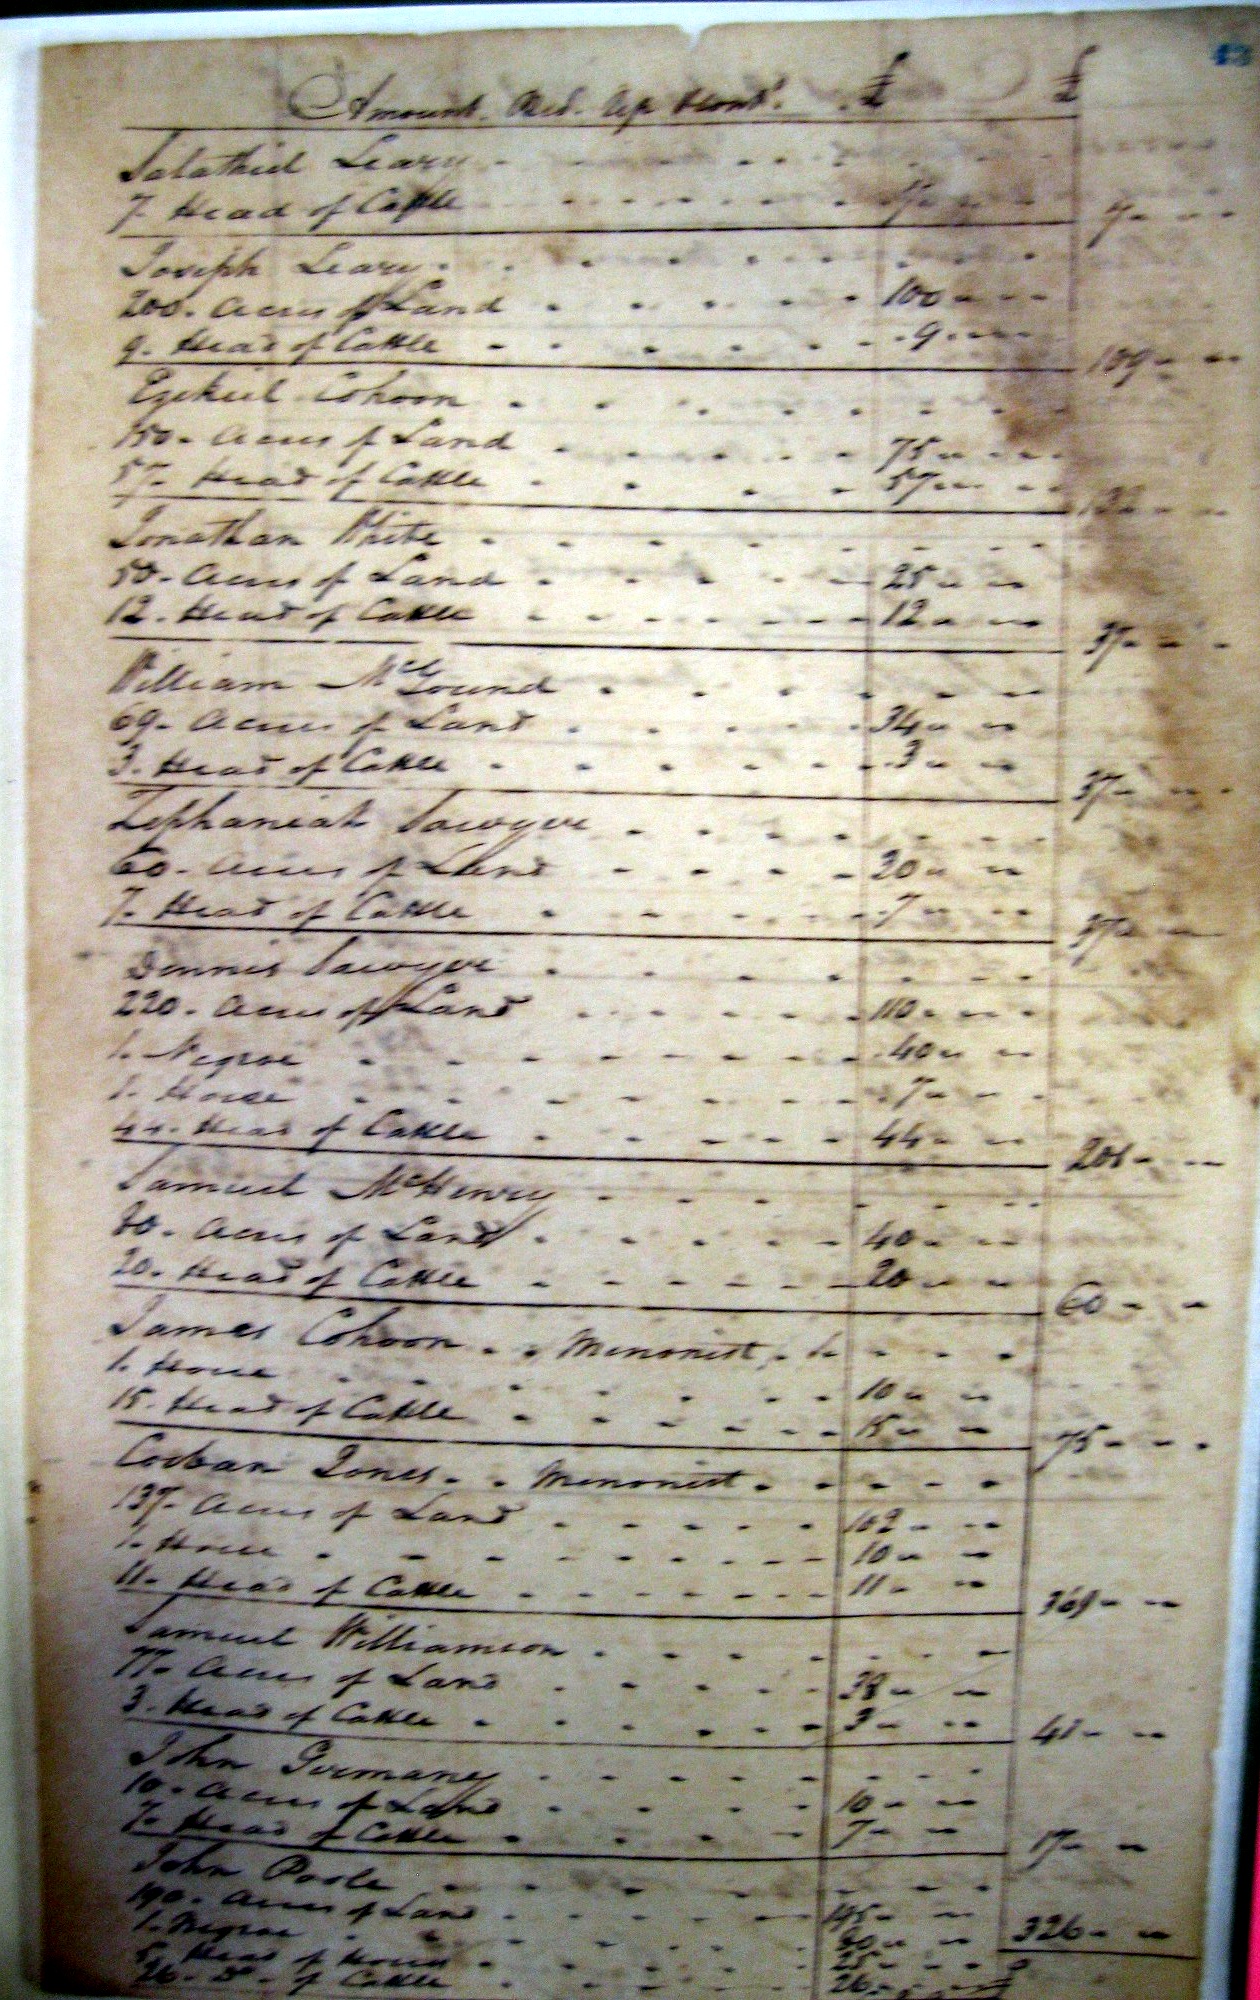 43
Amount £ £
Salathiel Leary
7. Head of Cattle 7 7
Joseph Leary
200. Acres of Land 100
9. Head of Cattle 9 109
Ezekiel Cohoon
150. Acres of Land 75
57. Head of Cattle 57 132
Jonathan White
50. Acres of Land 25
12. Head of Cattle 12 37
William
69. Acres of Land 34
3. Head of Cattle 3 37
Zephaniah Sawyer
60. Acres of Land 30
7. Head of Cattle 7 37
Dennis Sawyer
220. Acres of Land 110
1. Negroe 40
1. Horse 7
44. Head of Cattle 44 201
Samuel McHenry
80. Acres of Land 40
20. Head of Cattle 20 60
James Cohoon Menonist
1. Horse 10
15. Head of Cattle 15 75
Corban Jones Menonist
137. Acres of Land 102
1. Horse 10
11. Head of Cattle 11 369
Samuel Williamson
77. Acres of Land 38
3. Head of Cattle 3 41
John Germany
10. Acres of Land 10
7. Head of Cattle 7 17
John Poole
190. Acres of Land
1. Negroe
5. Head of Horses 25
26. Do. of Cattle 26 326